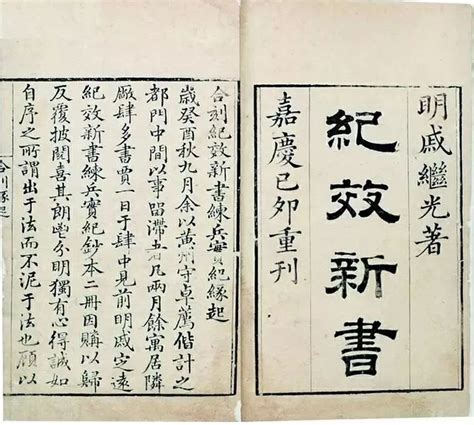 明戚繼光著
紀效新書
嘉慶己卯重刊
合刻紀效新書練兵實紀緣起
歲癸酉秋九月余以黃州守卓薦偕計之
都門中間以事留滯者几兩月餘寓居隣
厰肆多書賈一日于肆中見前明戚定遠
紀效新書練兵實紀鈔本二冊因購以歸
反覆披閱喜其朗鬯分明獨有心得誠如
自序之所謂出于法而不泥于法也顧以